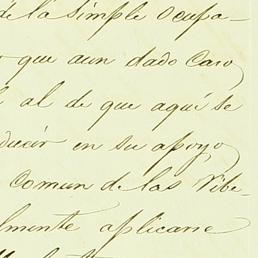 de la simple ocupa-
que aun dado caso
al de que aquí se
ducir en su apoyo
comun de las Ribe-
lmente aplicarse